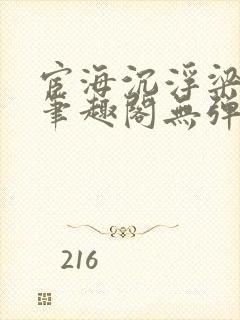 宦海沉浮梁
笔趣阁無弹
216